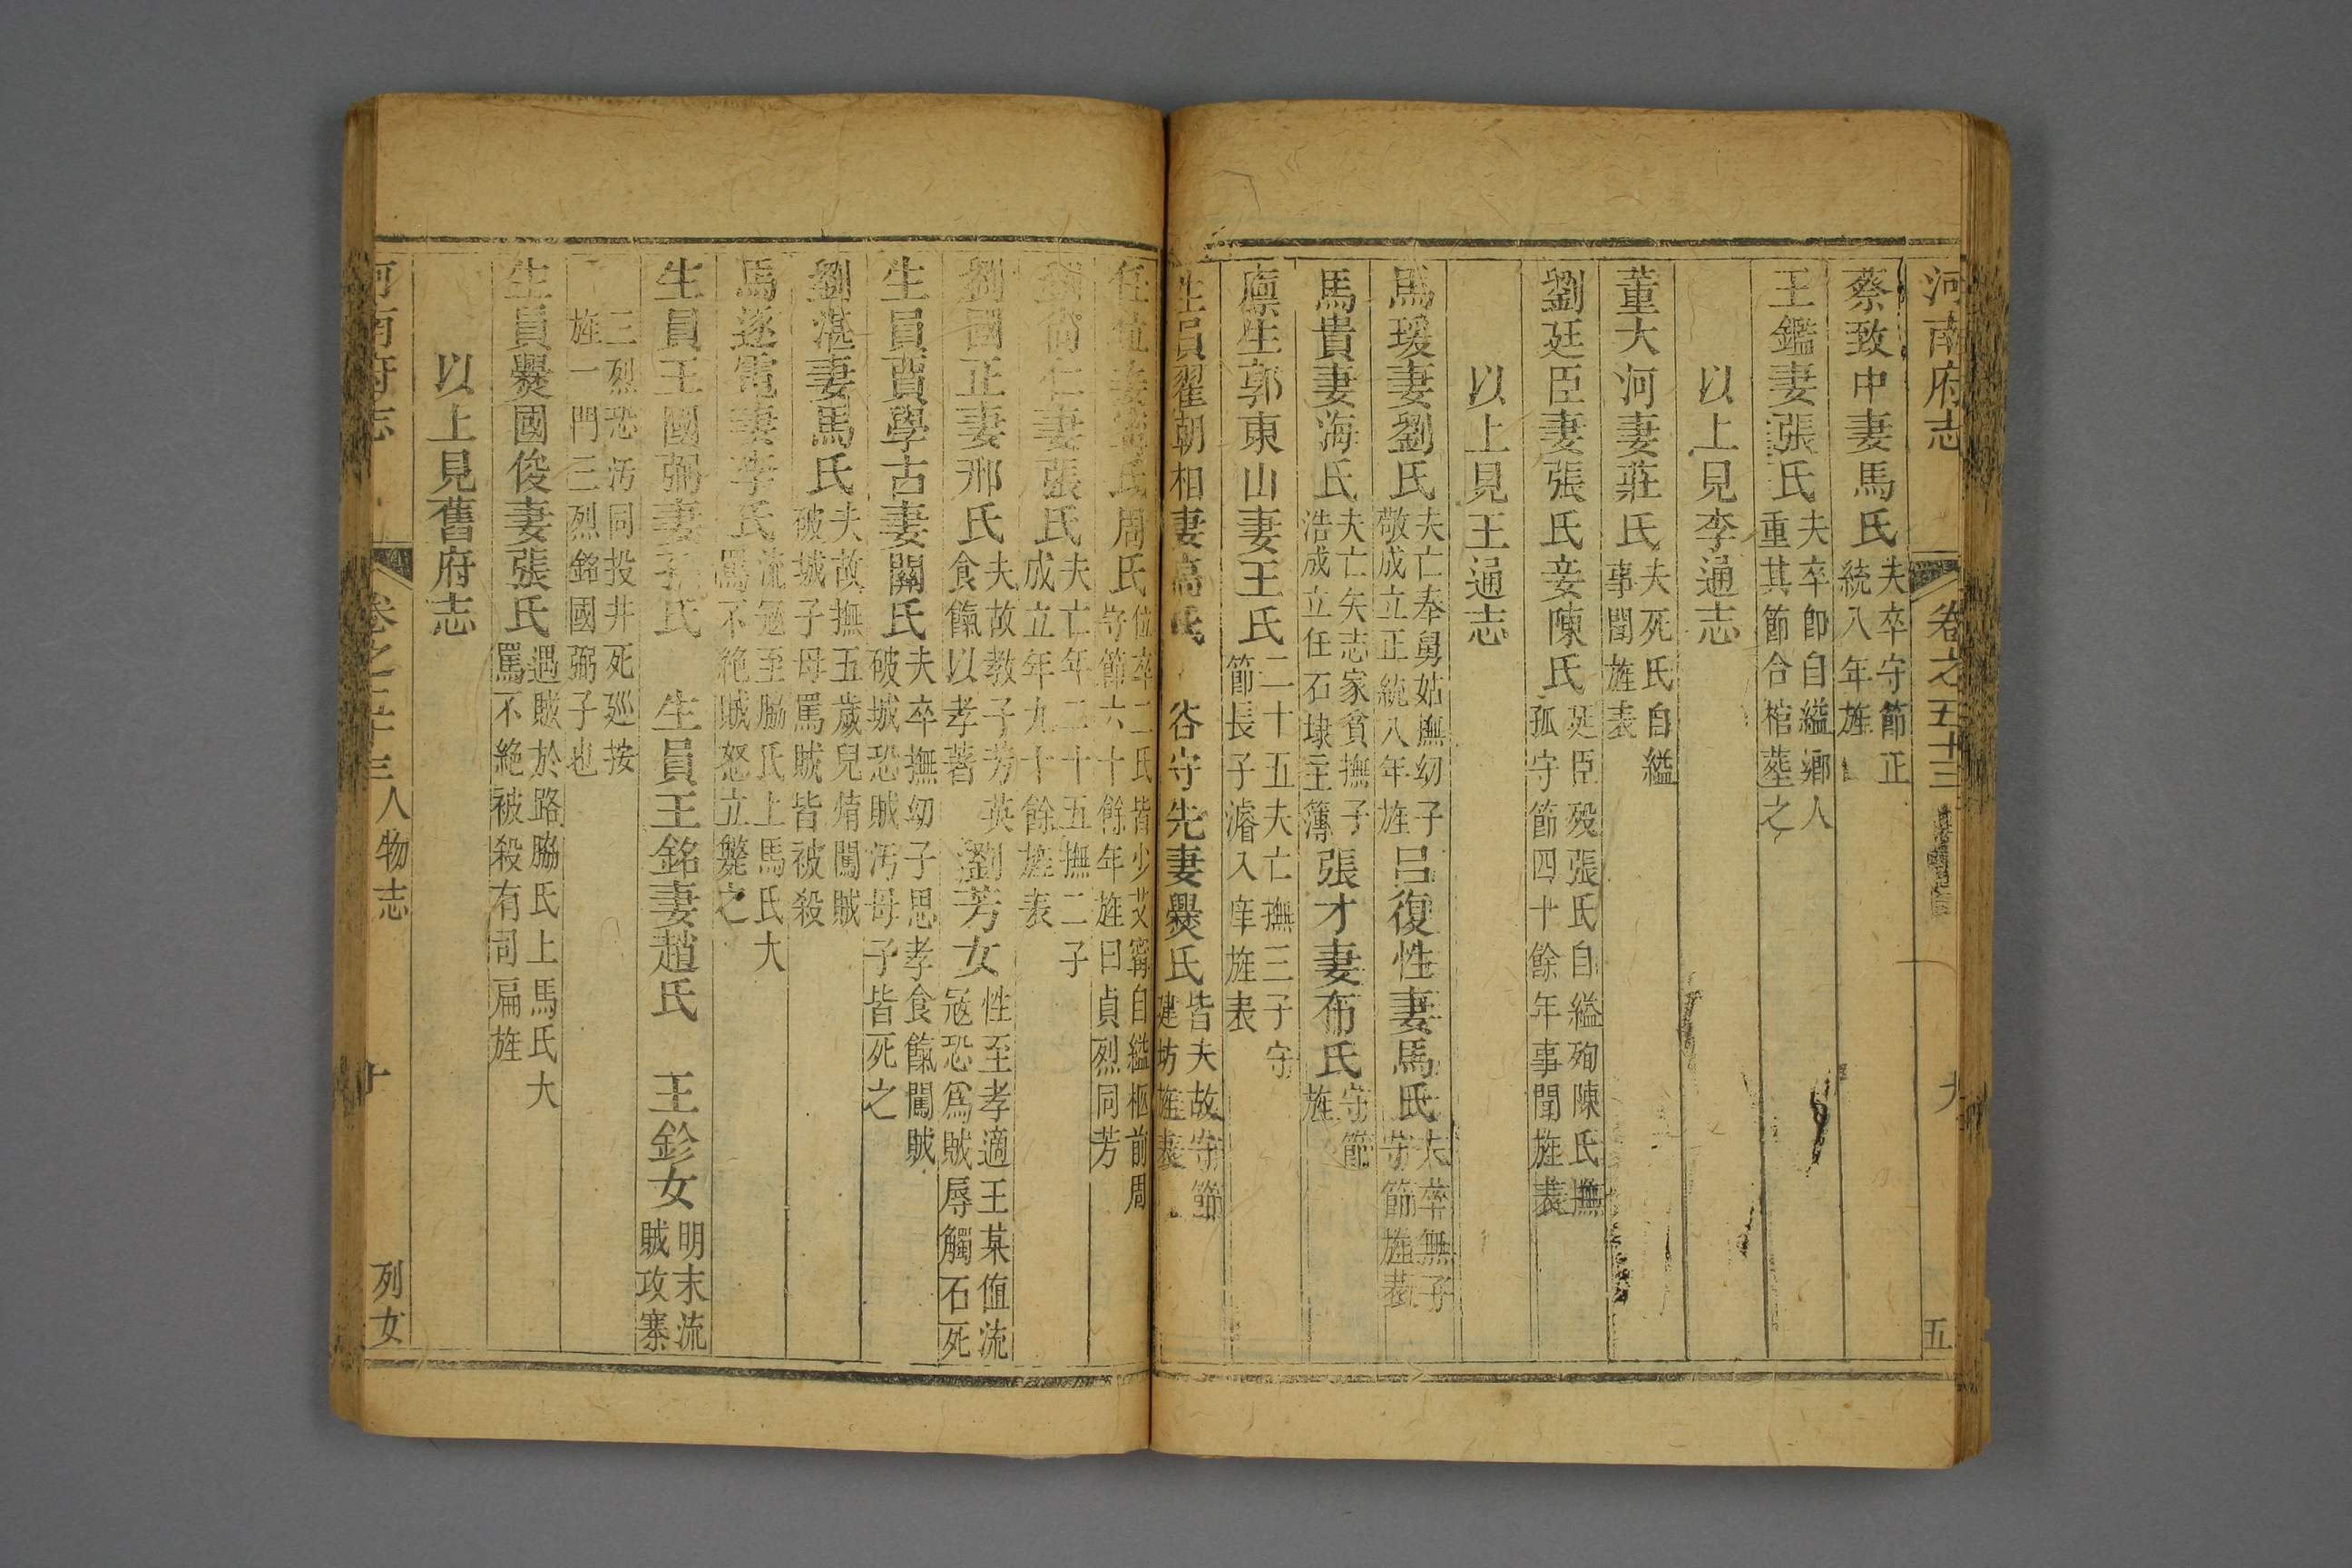 河南府志 卷之五十三 九 五
蔡致中妻馬氏 夫卒守節正
統八年旌
王鑑妻張氏 夫卒卽自縊鄉人
重其節合棺塟之
以上見李通志
董大河妻莊氏 夫死氏自縊
事聞旌表
劉廷臣妻張氏妾陳氏 廷臣歿張氏自縊殉陳氏撫
孤守節四十餘年事聞旌表
以上見王通志
馬瑗妻劉氏 夫亡奉舅姑撫幼子
敬成立正統八年旌 呂復性妻馬氏 夫卒無子
守節旌表
馬貴妻海氏 夫亡矢志家貧撫子
浩成立任石埭主簿 張才妻布氏 守節
旌
廪生郭東山妻王氏 二十五夫亡撫三子守
節長子濬入庠旌表
生員翟朝相妻高氏 谷守先妻爨氏 皆夫故守節
建坊旌表
任 妻 氏周氏 位卒二氏皆少艾甯自縊柩前周
守節六十餘年旌曰貞烈同芳
劉尚仁妻張氏 夫亡年二十五撫二子
成立年九十餘旌表
劉國正妻邢氏 夫故教子芳英
食餼以孝著 劉芳女 性至孝適王某值流
冦恐爲賊辱觸石死
生員賈學古妻關氏 夫卒撫幼子思孝食餼闖賊
破城恐賊汚母子皆死之
劉湛妻馬氏 夫故撫五歲兒焴闖賊
破城子母罵賊皆被殺
馬逐電妻李氏 流冦至脇氏上馬氏大
罵不絶賊怒立斃之
生員王國弼妻孔氏 生員王銘妻趙氏 王鉁女 明末流
賊攻寨
三烈恐汚同投井死廵按
旌一門三烈銘國弼子也
生員爨國俊妻張氏 遇賊於路脇氏上馬氏大
罵不絶被殺有司扁旌
以上見舊府志
河南府志 卷之五十三人物志 十 列女